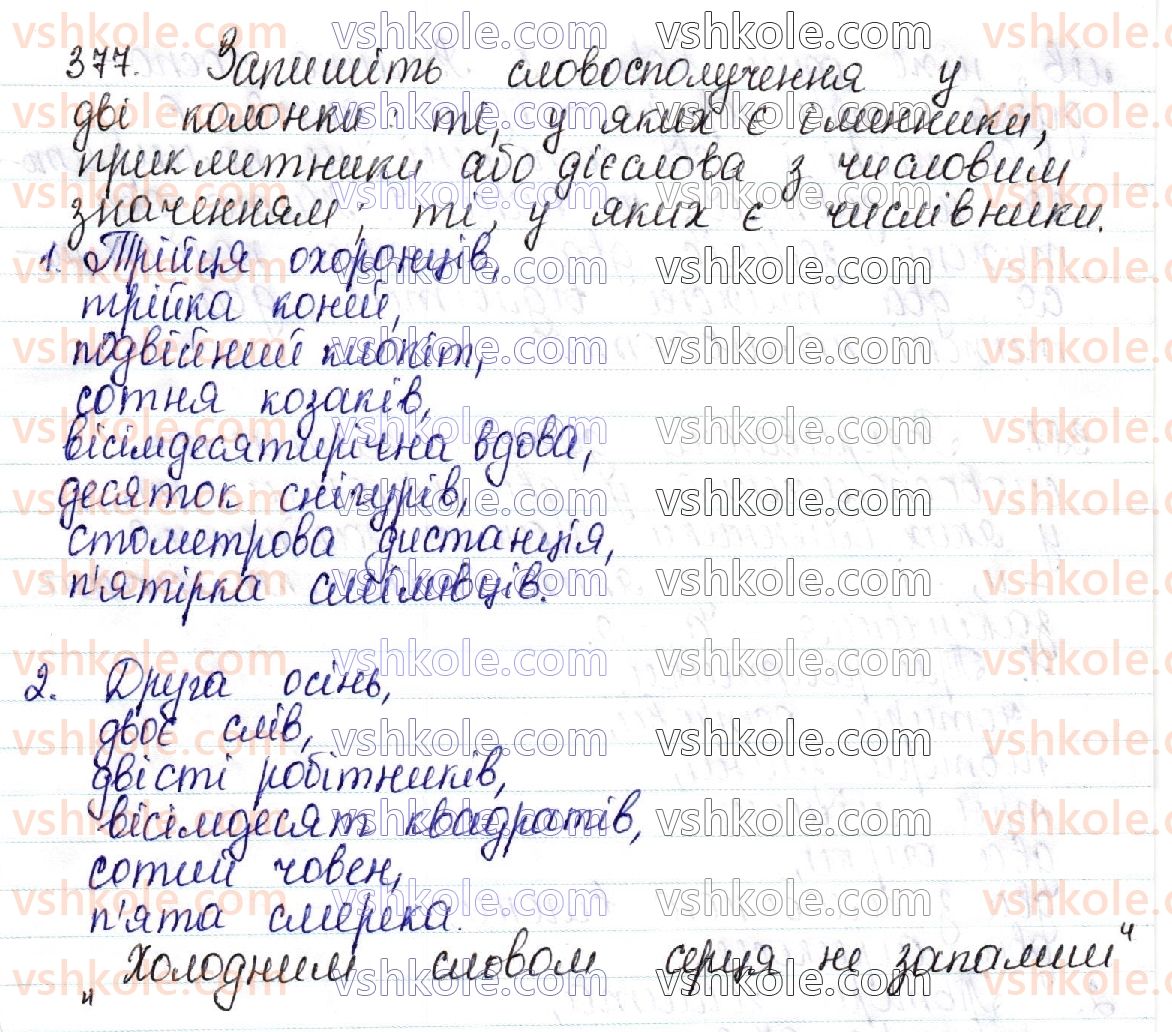 377. Запишіть словосполучення у
дві колонки: ті, у яких є іменники,
прикметники або дієслова з числовим
значенням; ті, у яких є числівники.
1. Трійця охоронців,
трійка коней,
подвійний клопіт,
сотня козаків,
вісімдесятирічна вдова,
десяток снігурів,
стометрова дистанція,
п'ятірка сміливців.
2. Друга осінь,
двоє слів,
двісті робітників,
вісімдесят квадратів,
сотий човен,
п'ята смерека.
„Холодним словом серця не запалиш"
vshkole.com